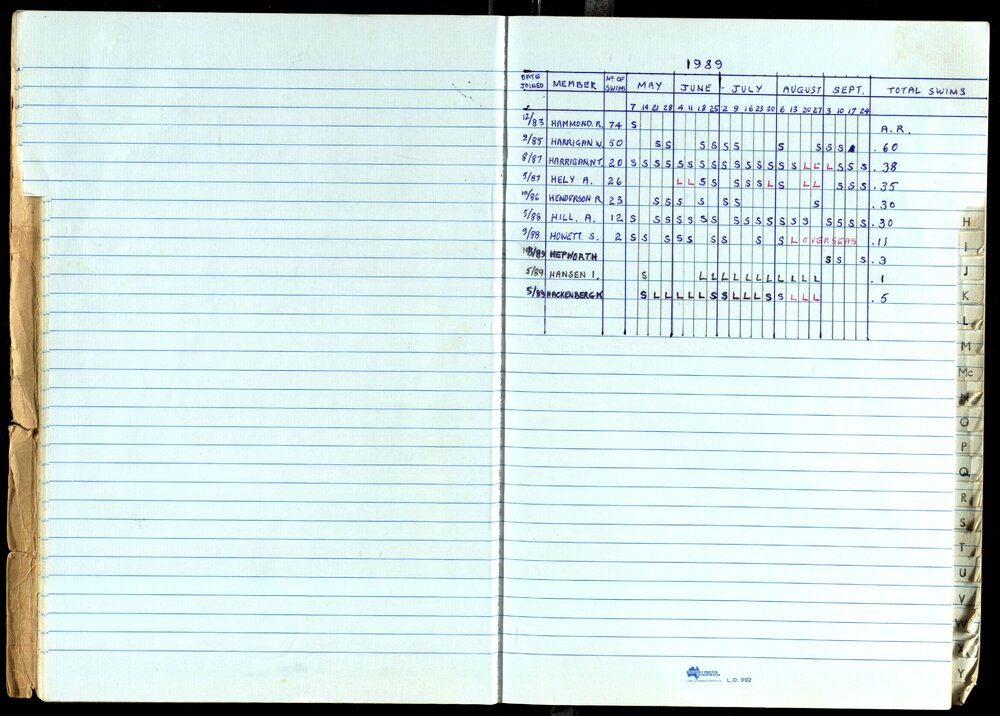 1989
DATE JOINED MEMBER Nº OF SWIMS MAY JUNE JULY AUGUST SEPT. TOTAL SWIMS
7 14 21 28 4 11 18 25 2 9 16 23 30 6 13 20 27 3 10 17 24
12/83 HAMMOND. R. 74 S A.R.
2/85 HARRIGAN W. 50 S S S S S S S S S S . 60
8/87 HARRIGAN NT. 20 S S S S S S S S S S S S S S S L L L S S S . 38
5/87 HELY A. 26 L L S S S S S L S L L S S S . 35
10/86 HENDERSON R. 23 S S S S S S S . 30
5/88 HILL. A. 12 S S S S S S S S S S S S S S S S S S . 30
9/88 HOWETT S. 2 S S S S S S S S S L OVERSEAS . 11
HEPWORTH S S S . 3
5/89 HANSEN I. S L L L L L L L L L L L . 1
5/89 HACKENBERG K S L L L L L S S L L L S S L L L . 5
H
I
J
K
L
M
Mc
N
O
P
Q
R
S
T
U
V
W
X
Y
L.O. 992